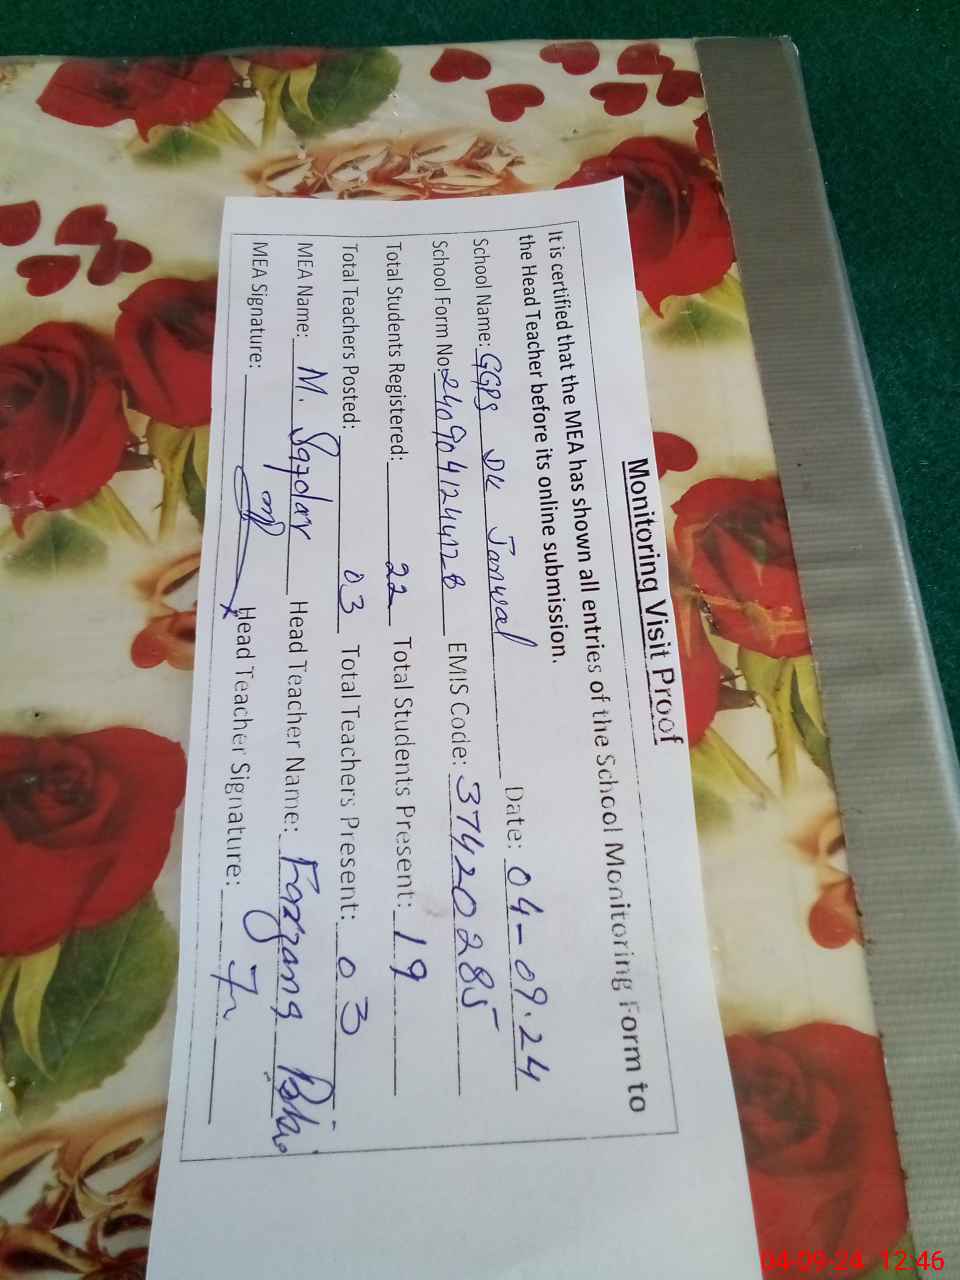 Monitoring Visit Proof
It is certified that the MEA has shown all entries of the School Monitoring Form to
the Head Teacher before its online submission.
School Name: GGPS DK Date: 04-09-24
School Form No: EMIS Code: 37420285
Total Students Registered: 22 Total Students Present: 19
Total Teachers Posted: 03 Total Teachers Present: 03
MEA Name: M. Head Teacher Name:
MEA Signature: Head Teacher Signature:
04-09-24 12:46